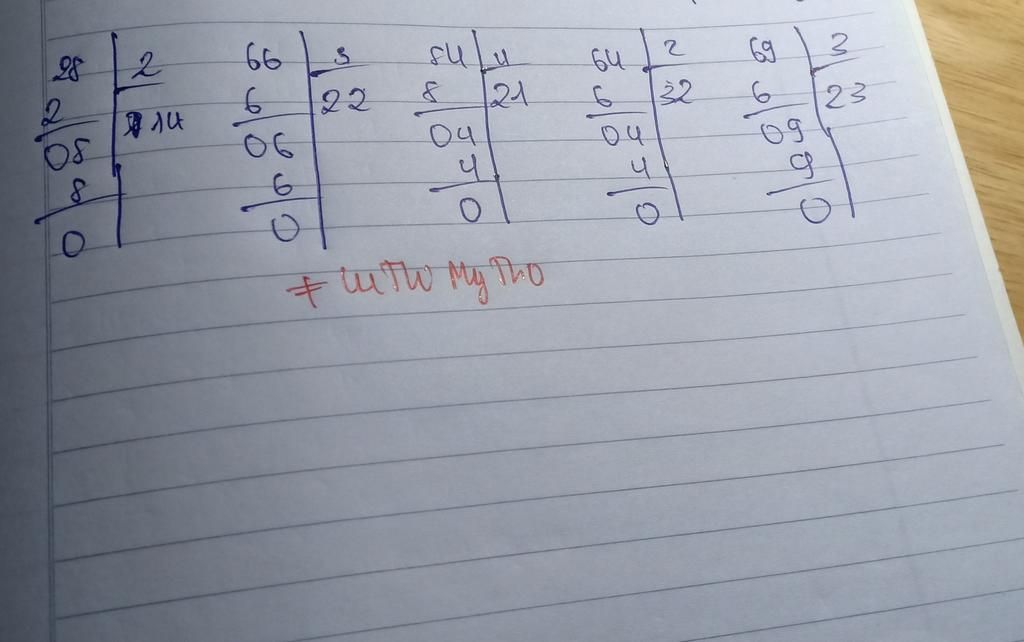 28 2 66 3 84 4 64 2 69 3
2 14 6 22 8 21 6 32 6 23
08 06 04 04 09
8 6 4 4 9
0 0 0 0 0